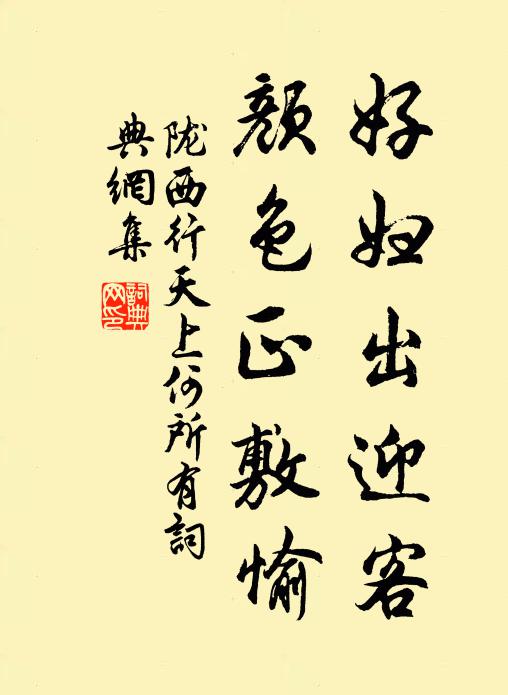 好妇出迎客
颜色正敷愉
陇西行天上何所有詞
典網集
詞典
网印